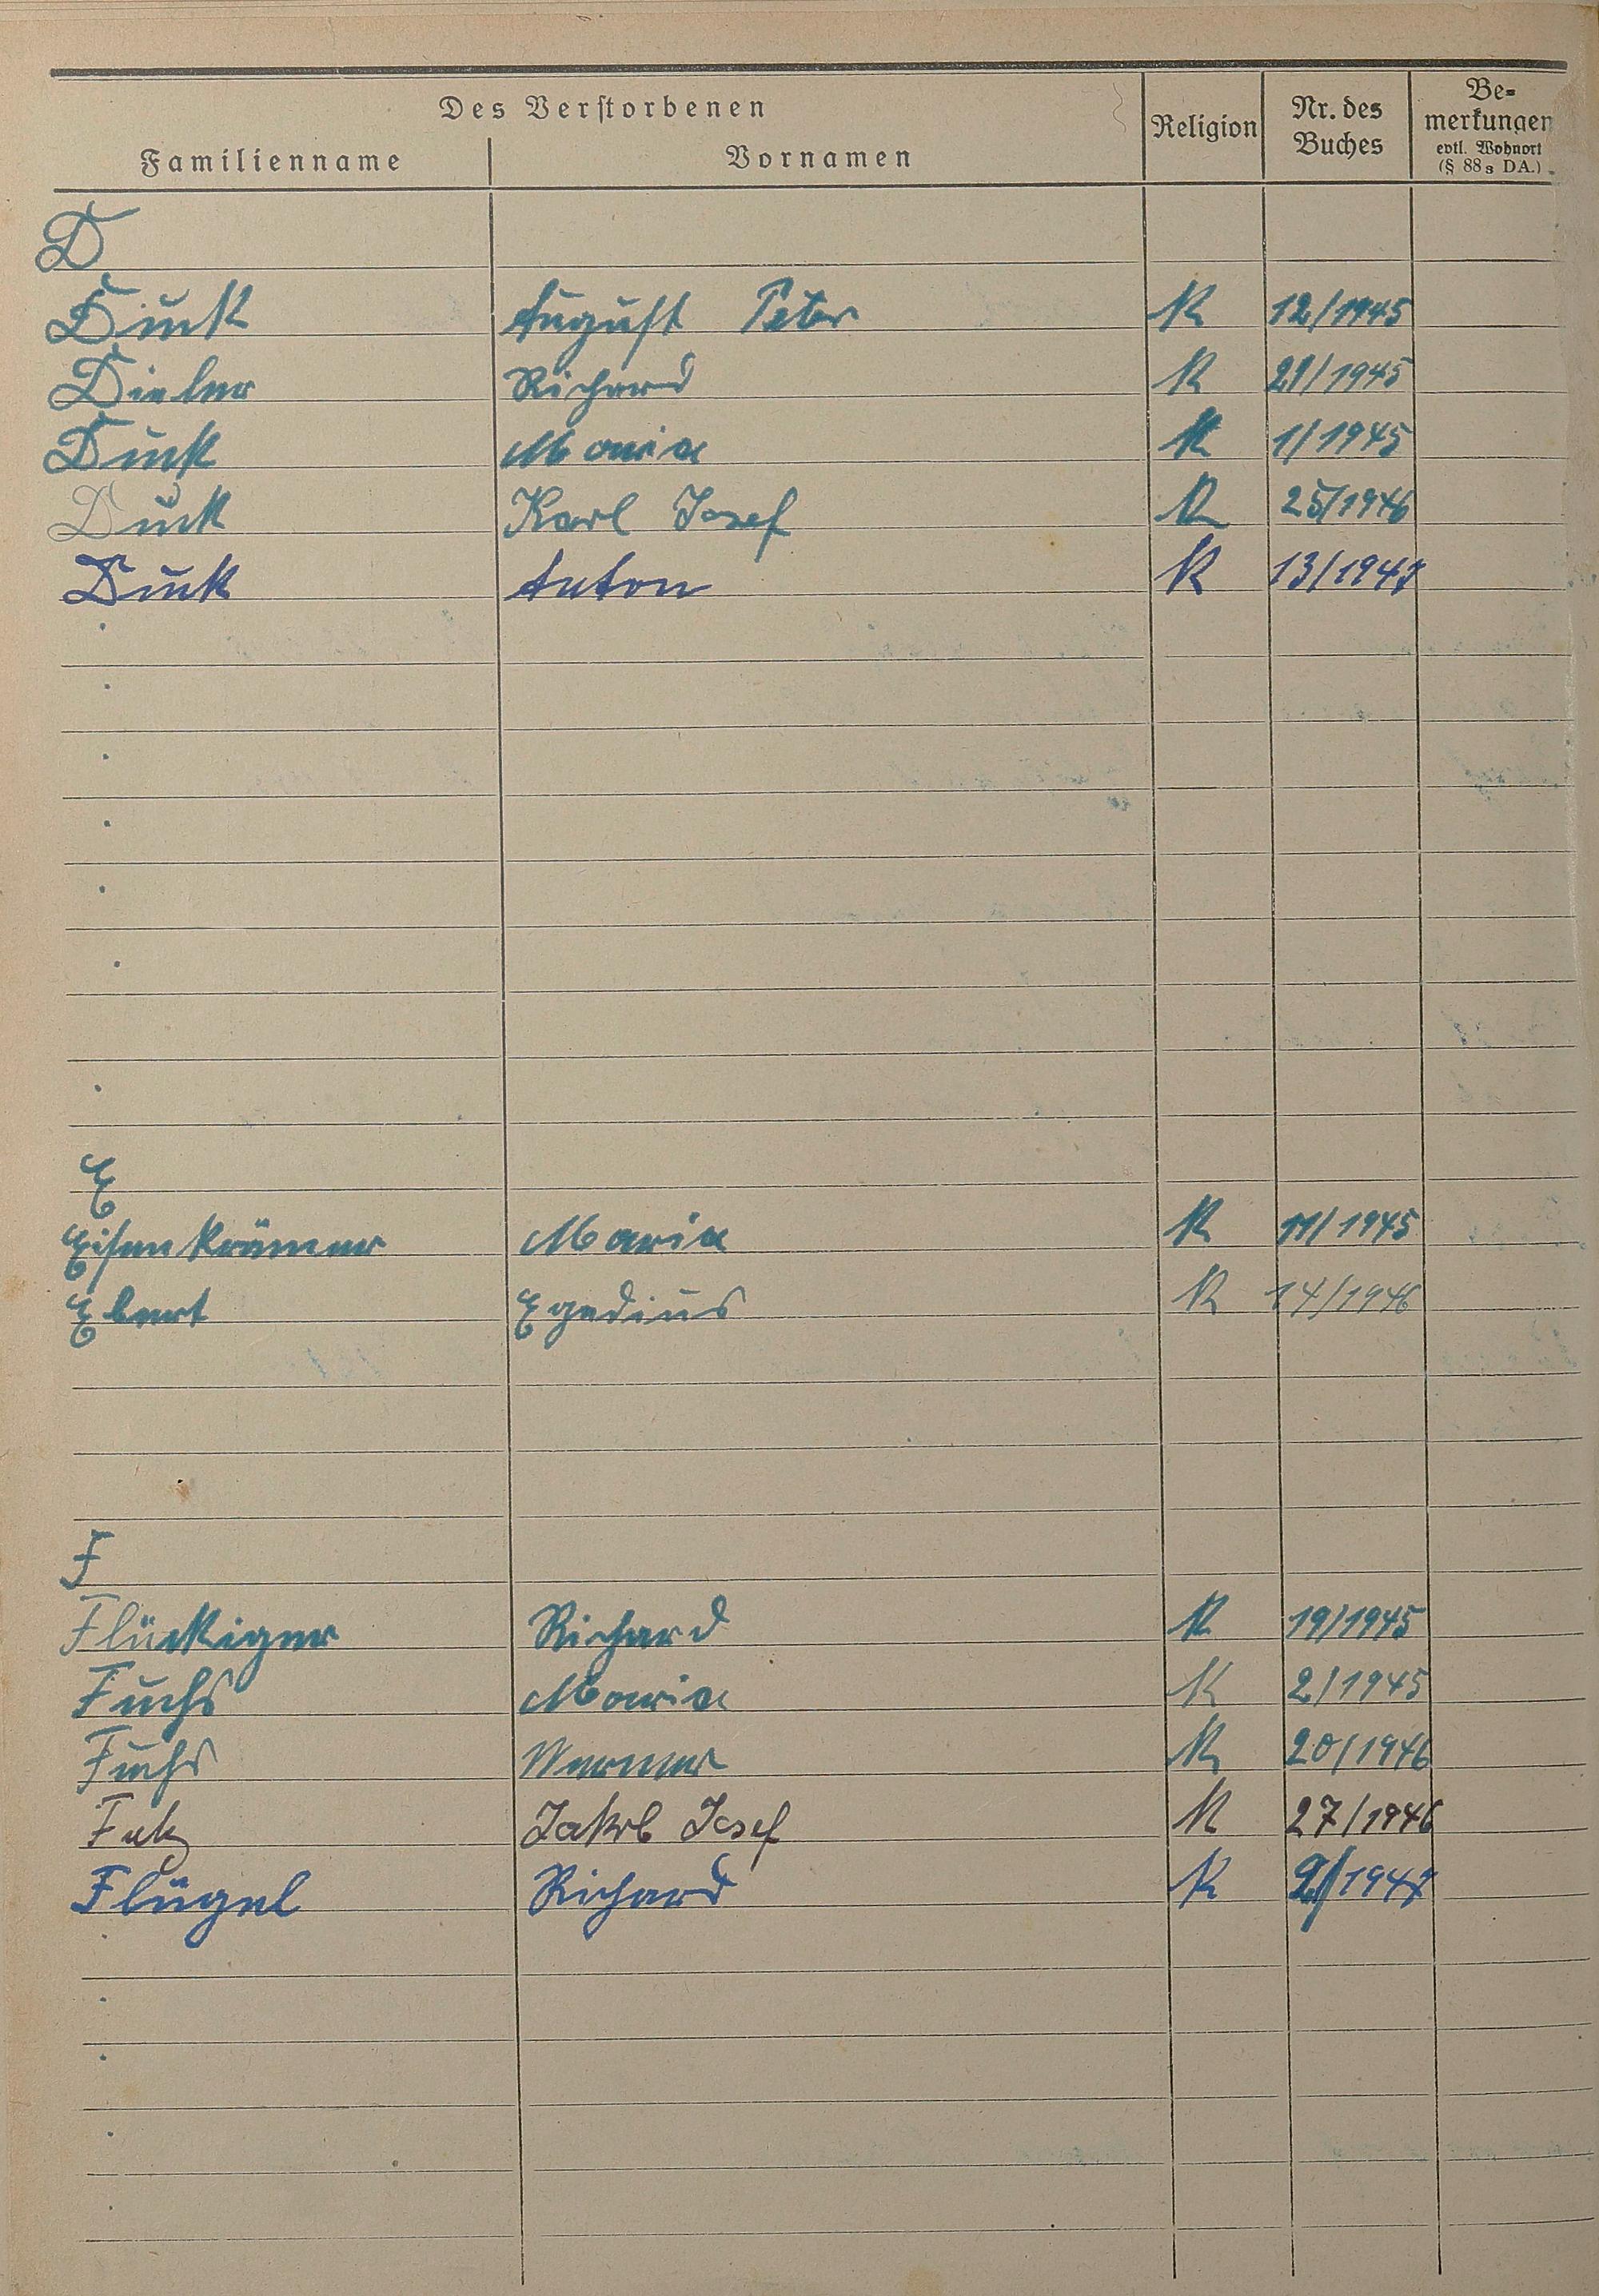 Des Verstorbenen
Familienname Vornamen Religion Nr. des Buches Bemerkungen evtl. Wohnort (§ 88 s DA.)
D
Duck August Peter K 12/1945
Dieler Richard K 21/1945
Duck Maria K 1/1945
Duck Karl Josef K 25/1946
Duck Anton K 13/1947
E
Eisenkrämer Maria K 11/1945
Ebert Egedius K 14/1946
F
Flückiger Richard K 19/1945
Fuchs Maria K 2/1945
Fuchs Werner K 20/1946
Jakob Josef K 27/1946
Flügel Richard K /1947